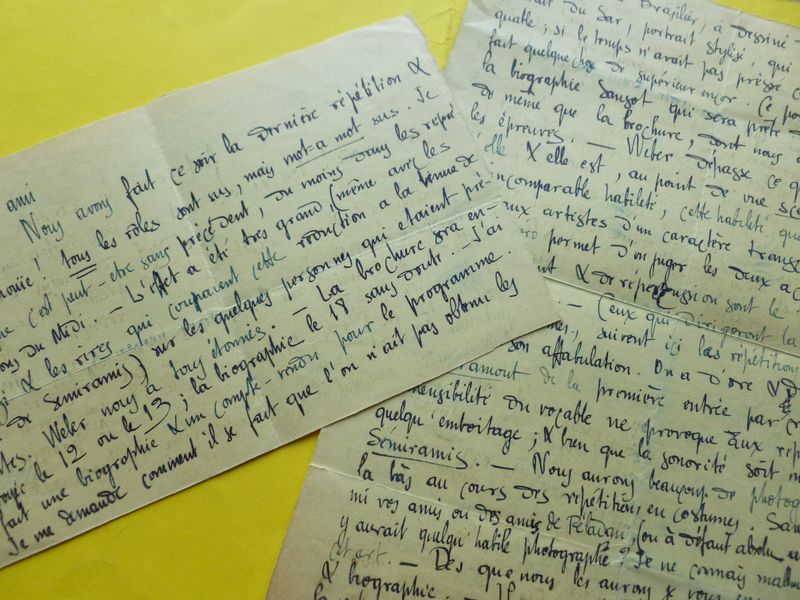 ami
Nous avons fait ce soir la dernière répétition &
! tous les rôles sont sus, mais mot-à mot sus. Je
c'est peut-etre sans précédent, du moins dans les repré
ons du Midi. — L'effet a été tres grand, (même avec les
& les rires qui coupaient cette réduction a la
de Sémiramis) sur les quelques personnes qui etaient pré-
tes. Weber nous a tous étonnés. — La brochure sera en-
le 12 ou le 13; la biographie le 18 sans doute. — J'ai
fait une biographie & un compte-rendu pour le programme.
Je me demande comment il se fait que l'on n'ait pas obtenu les
Brasilier, a dessiné
du Sar, portrait stylisé, qui
; si le temps n'avait pas pressé
fait quelque chose de supérieur encor. Ce por
la biographie Sansot qui sera prête
de même que la brochure, dont nous a
les épreuves. — Weber dépasse ce q
elle & elle est, au point de vue
incomparable habileté, cette habileté que
aux artistes d'un caractère trans
permet d'en juger les deux a
& de répercussion sont le
. — Ceux qui dirigeront la
, suivront ici les répétition
son affabulation. On a d'ore &
de la première entrée par
ensibilité du vocable ne provoque aux rep
quelqu'emboitage; & bien que la sonorité soit
Sémiramis. — Nous aurons beaucoup de photog
la bàs au cours des répétitions en costumes.
mi vos amis ou des amis de Péladan, (ou à défaut absolu
y aurait quelqu'habile photographe? Je ne connais
cet art. — Dès que nous les aurons je vous
& biographie. —